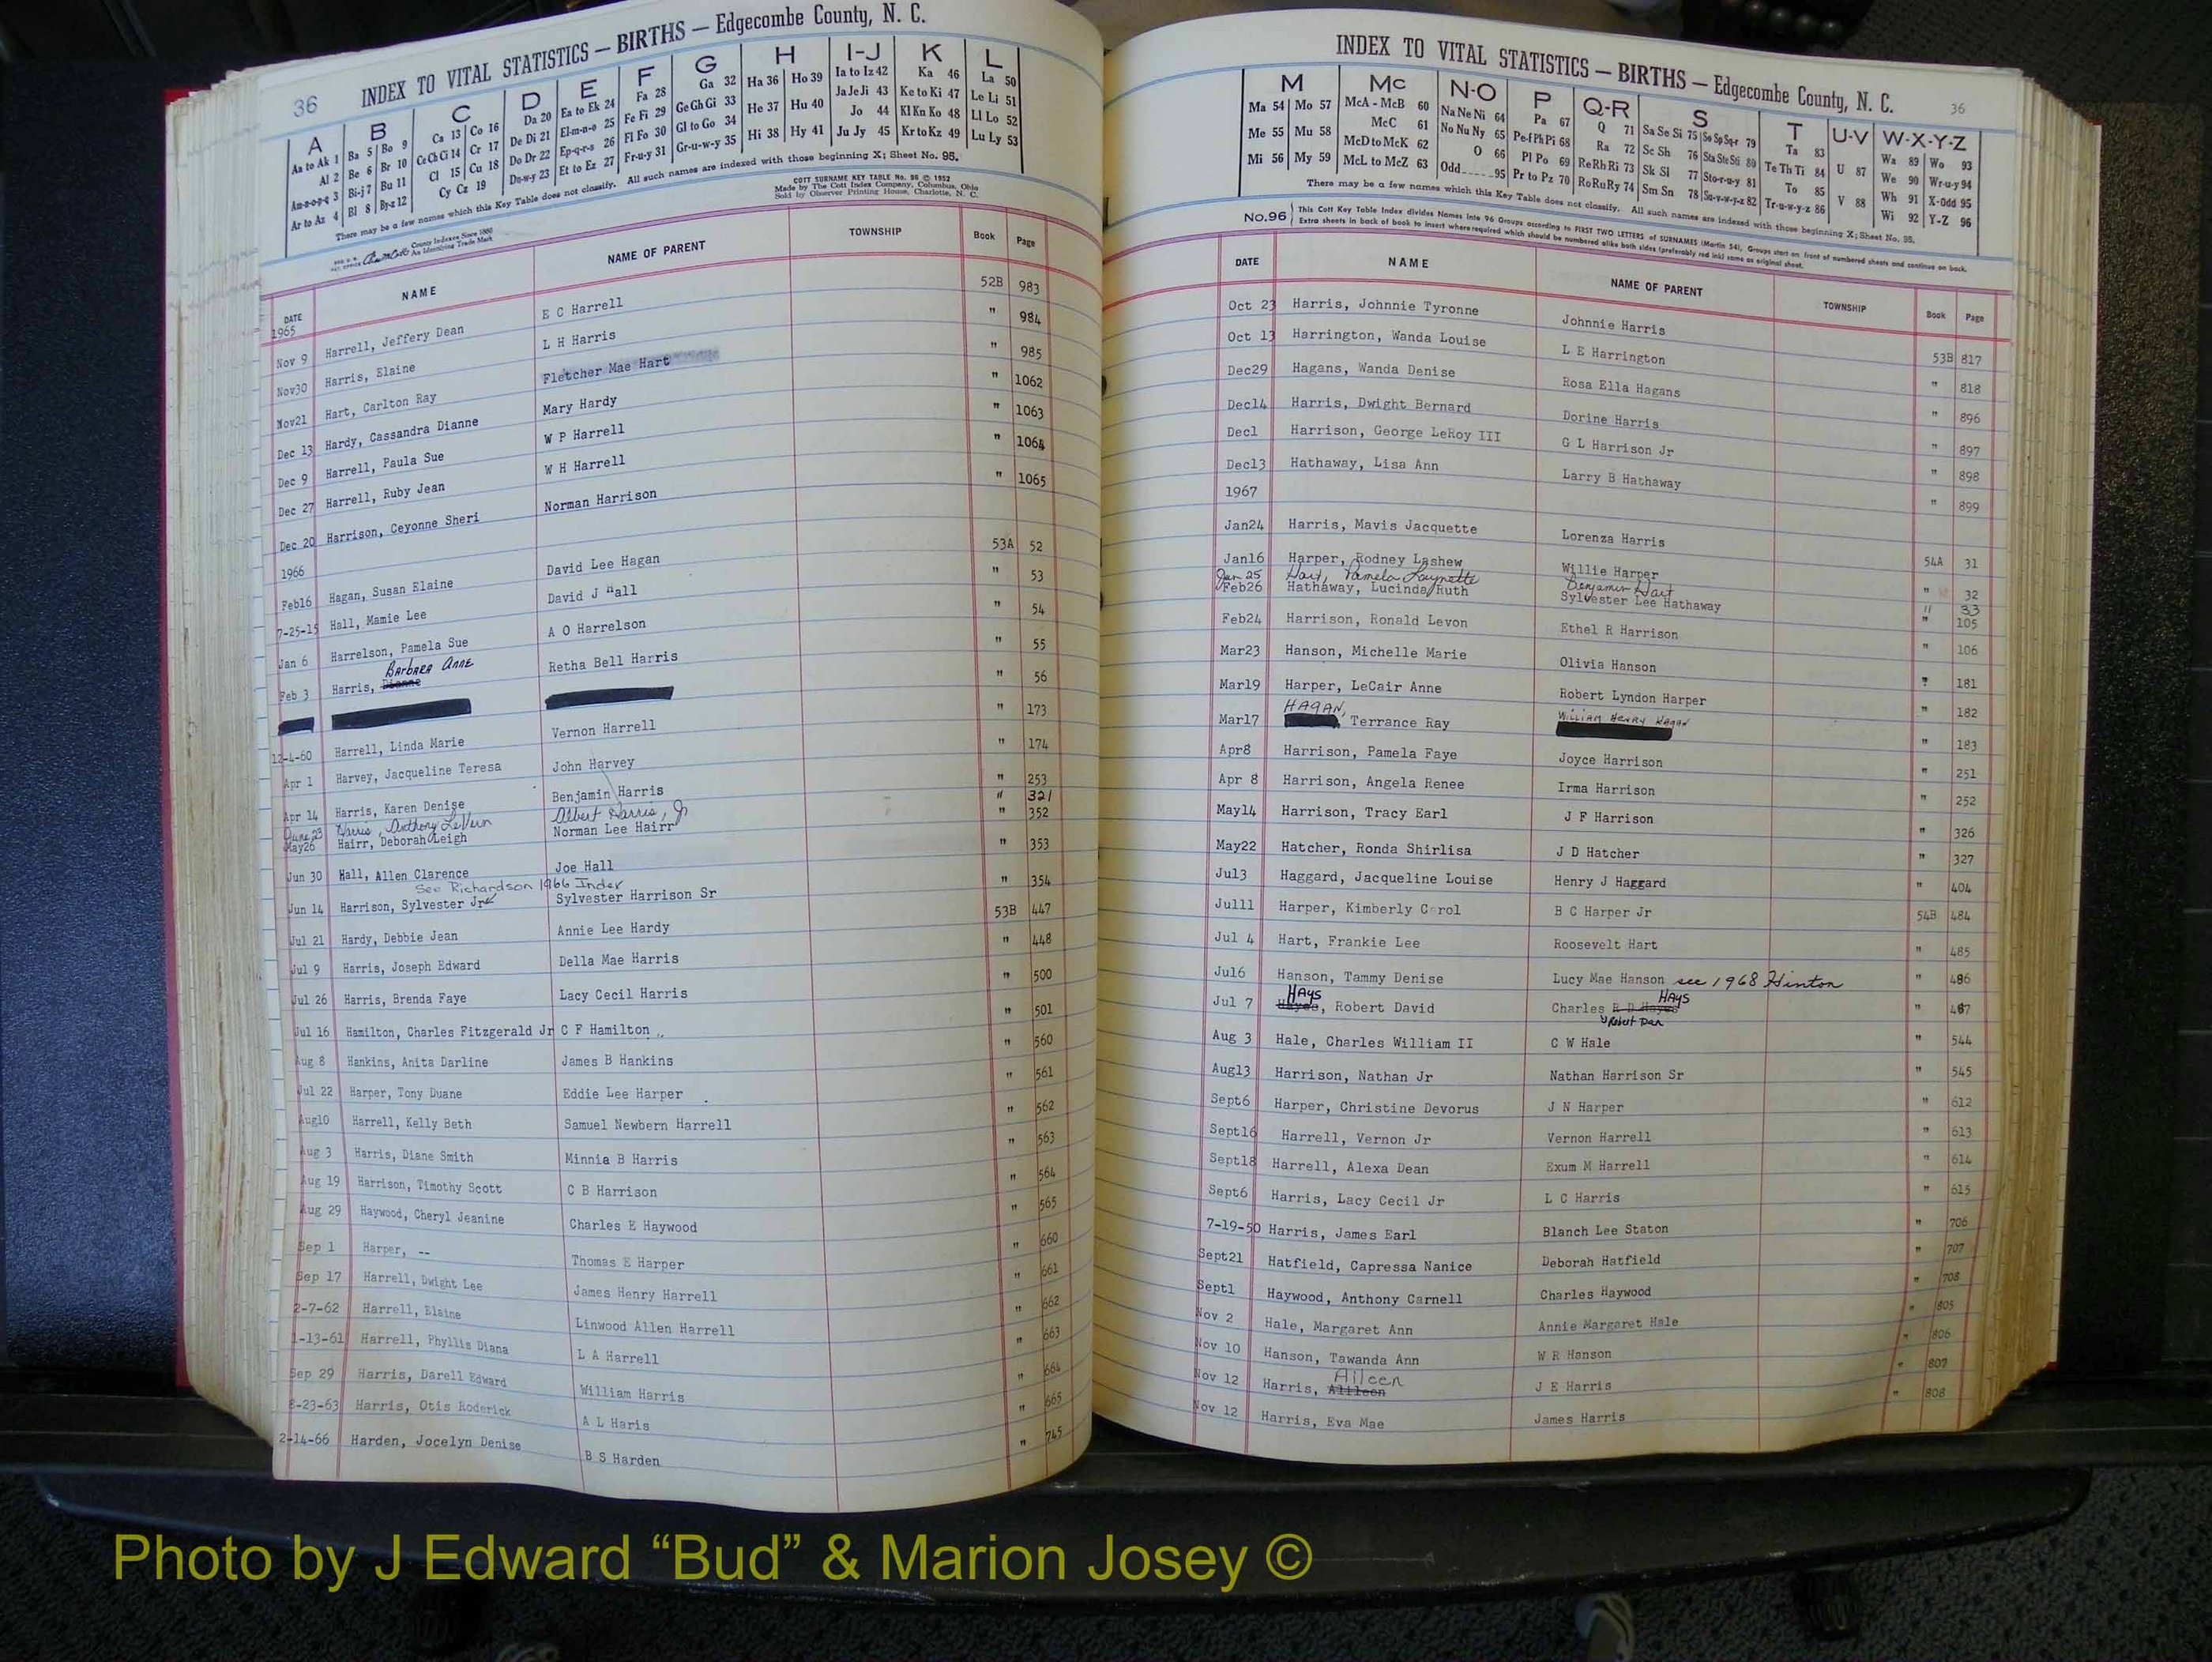 36 INDEX TO VITAL STATISTICS — BIRTHS — Edgecombe County, N. C.
A B C D E F G H I-J K L
Aa to Ak 1 Ba 5 Bo 9 Ca 13 Co 16 Da 20 Ea to Ek 24 Fa 28 Ga 32 Ha 36 Ho 39 Ia to Iz 42 Ka 46 La 50
Al 2 Be 6 Br 10 Ce Ch Ci 14 Cr 17 De Di 21 El-m-n-o 25 Fe Fi 29 Ge Gh Gi 33 He 37 Hu 40 Ja Je Ji 43 Ke to Ki 47 Le Li 51
Am-n-o-p-q 3 Bi-j 7 Bu 11 Cl 15 Cu 18 Do Dr 22 Ep-q-r-s 26 Fl Fo 30 Gl to Go 34 Hi 38 Hy 41 Jo 44 Kl Kn Ko 48 Ll Lo 52
Ar to Az 4 Bl 8 By-z 12 Cy Cz 19 Du-w-y 23 Et to Ez 27 Fr-u-y 31 Gr-u-w-y 35 Ju Jy 45 Kr to Kz 49 Lu Ly 53
There may be a few names which this Key Table does not classify. All such names are indexed with those beginning X; Sheet No. 95.
COTT SURNAME KEY TABLE No. 96 © 1952
Made by The Cott Index Company, Columbus, Ohio
Sold by Observer Printing House, Charlotte, N. C.
County Indexes Since 1888
An Identifying Trade Mark
DATE NAME NAME OF PARENT TOWNSHIP Book Page
1965
Nov 9 Harrell, Jeffery Dean E C Harrell 52B 983
Nov30 Harris, Elaine L H Harris " 984
Nov21 Hart, Carlton Ray Fletcher Mae Hart " 985
Dec 13 Hardy, Cassandra Dianne Mary Hardy " 1062
Dec 9 Harrell, Paula Sue W P Harrell " 1063
Dec 27 Harrell, Ruby Jean W H Harrell " 1064
Dec 20 Harrison, Ceyonne Sheri Norman Harrison " 1065
1966
Feb16 Hagan, Susan Elaine David Lee Hagan 53A 52
7-25-15 Hall, Mamie Lee David J Hall " 53
Jan 6 Harrelson, Pamela Sue A O Harrelson " 54
Barbara Anne
Feb 3 Harris, Dianne Retha Bell Harris " 55
" 56
12-4-60 Harrell, Linda Marie Vernon Harrell " 173
Apr 1 Harvey, Jacqueline Teresa John Harvey " 174
Apr 14 Harris, Karen Denise Benjamin Harris " 253
June 23 Harris, Anthony LeVern Albert Harris, Jr " 321
May26 Hairr, Deborah Leigh Norman Lee Hairr " 352
Jun 30 Hall, Allen Clarence Joe Hall " 353
See Richardson 1966 Index
Jun 14 Harrison, Sylvester Jr Sylvester Harrison Sr " 354
Jul 21 Hardy, Debbie Jean Annie Lee Hardy 53B 447
Jul 9 Harris, Joseph Edward Della Mae Harris " 448
Jul 26 Harris, Brenda Faye Lacy Cecil Harris " 500
Jul 16 Hamilton, Charles Fitzgerald Jr C F Hamilton " 501
Aug 8 Hankins, Anita Darline James B Hankins " 560
Jul 22 Harper, Tony Duane Eddie Lee Harper " 561
Aug10 Harrell, Kelly Beth Samuel Newbern Harrell " 562
Aug 3 Harris, Diane Smith Minnia B Harris " 563
Aug 19 Harrison, Timothy Scott C B Harrison " 564
Aug 29 Haywood, Cheryl Jeanine Charles E Haywood " 565
Sep 1 Harper, -- Thomas E Harper " 660
Sep 17 Harrell, Dwight Lee James Henry Harrell " 661
2-7-62 Harrell, Elaine Linwood Allen Harrell " 662
1-13-61 Harrell, Phyllis Diana L A Harrell " 663
Sep 29 Harris, Darell Edward William Harris " 664
8-23-63 Harris, Otis Roderick A L Haris " 665
2-14-66 Harden, Jocelyn Denise B S Harden " 745
INDEX TO VITAL STATISTICS — BIRTHS — Edgecombe County, N. C. 36
M Mc N-O P Q-R S T U-V W-X-Y-Z
Ma 54 Mo 57 McA - McB 60 Na Ne Ni 64 Pa 67 Q 71 Sa Se Si 75 So Sp Sq-r 79 Ta 83 U 87 Wa 89 Wo 93
Me 55 Mu 58 McC 61 No Nu Ny 65 Pe-f Ph Pi 68 Ra 72 Sc Sh 76 Sta Ste Sti 80 Te Th Ti 84 V 88 We 90 Wr-u-y 94
Mi 56 My 59 McD to McK 62 O 66 Pl Po 69 Re Rh Ri 73 Sk Sl 77 Sto-r-u-y 81 To 85 Wh 91 X-Odd 95
McL to McZ 63 Odd 95 Pr to Pz 70 Ro Ru Ry 74 Sm Sn 78 Su-v-w-y-z 82 Tr-u-w-y-z 86 Wi 92 Y-Z 96
There may be a few names which this Key Table does not classify. All such names are indexed with those beginning X; Sheet No. 95.
No.96 This Cott Key Table Index divides Names into 96 Groups according to FIRST TWO LETTERS of SURNAMES (Martin 54), Groups start on front of numbered sheets and continue on back.
Extra sheets in back of book to insert where required which should be numbered alike both sides (preferably red ink) same as original sheet.
DATE NAME NAME OF PARENT TOWNSHIP Book Page
Oct 23 Harris, Johnnie Tyronne Johnnie Harris 53B 817
Oct 13 Harrington, Wanda Louise L E Harrington " 818
Dec29 Hagans, Wanda Denise Rosa Ella Hagans " 896
Dec14 Harris, Dwight Bernard Dorine Harris " 897
Dec1 Harrison, George LeRoy III G L Harrison Jr " 898
Dec13 Hathaway, Lisa Ann Larry B Hathaway " 899
1967
Jan24 Harris, Mavis Jacquette Lorenza Harris 54A 31
Jan16 Harper, Rodney Lashew Willie Harper " 32
Jan 25 Hart, Pamela Laynette Benjamin Hart " 33
Feb26 Hathaway, Lucinda Ruth Sylvester Lee Hathaway " 105
Feb24 Harrison, Ronald Levon Ethel R Harrison " 106
Mar23 Hanson, Michelle Marie Olivia Hanson " 181
Mar19 Harper, LeCair Anne Robert Lyndon Harper " 182
HAGAN, WILLIAM HENRY HAGAN
Mar17 Terrance Ray " 183
Apr8 Harrison, Pamela Faye Joyce Harrison " 251
Apr 8 Harrison, Angela Renee Irma Harrison " 252
May14 Harrison, Tracy Earl J F Harrison " 326
May22 Hatcher, Ronda Shirlisa J D Hatcher " 327
Jul3 Haggard, Jacqueline Louise Henry J Haggard " 404
Jul11 Harper, Kimberly Carol B C Harper Jr 54B 484
Jul 4 Hart, Frankie Lee Roosevelt Hart " 485
Jul6 Hanson, Tammy Denise Lucy Mae Hanson see 1968 Hinton " 486
HAYS HAYS
Jul 7 Hayes, Robert David Charles R D Hayes " 487
Robert Dan
Aug 3 Hale, Charles William II C W Hale " 544
Aug13 Harrison, Nathan Jr Nathan Harrison Sr " 545
Sept6 Harper, Christine Devorus J N Harper " 612
Sept16 Harrell, Vernon Jr Vernon Harrell " 613
Sept18 Harrell, Alexa Dean Exum M Harrell " 614
Sept6 Harris, Lacy Cecil Jr L C Harris " 615
7-19-50 Harris, James Earl Blanch Lee Staton " 706
Sept21 Hatfield, Capressa Nanice Deborah Hatfield " 707
Sept1 Haywood, Anthony Carnell Charles Haywood " 708
Nov 2 Hale, Margaret Ann Annie Margaret Hale " 805
Nov 10 Hanson, Tawanda Ann W R Hanson " 806
Aileen
Nov 12 Harris, Alileen J E Harris " 807
Nov 12 Harris, Eva Mae James Harris " 808
Photo by J Edward “Bud” & Marion Josey ©